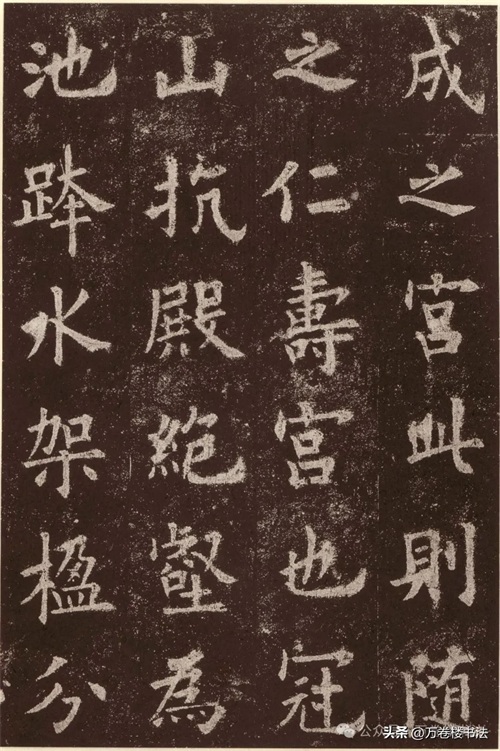 成之宮此則随
之仁壽宮也冠
山抗殿絶壑為
池跨水架楹分
头条@万卷楼书法